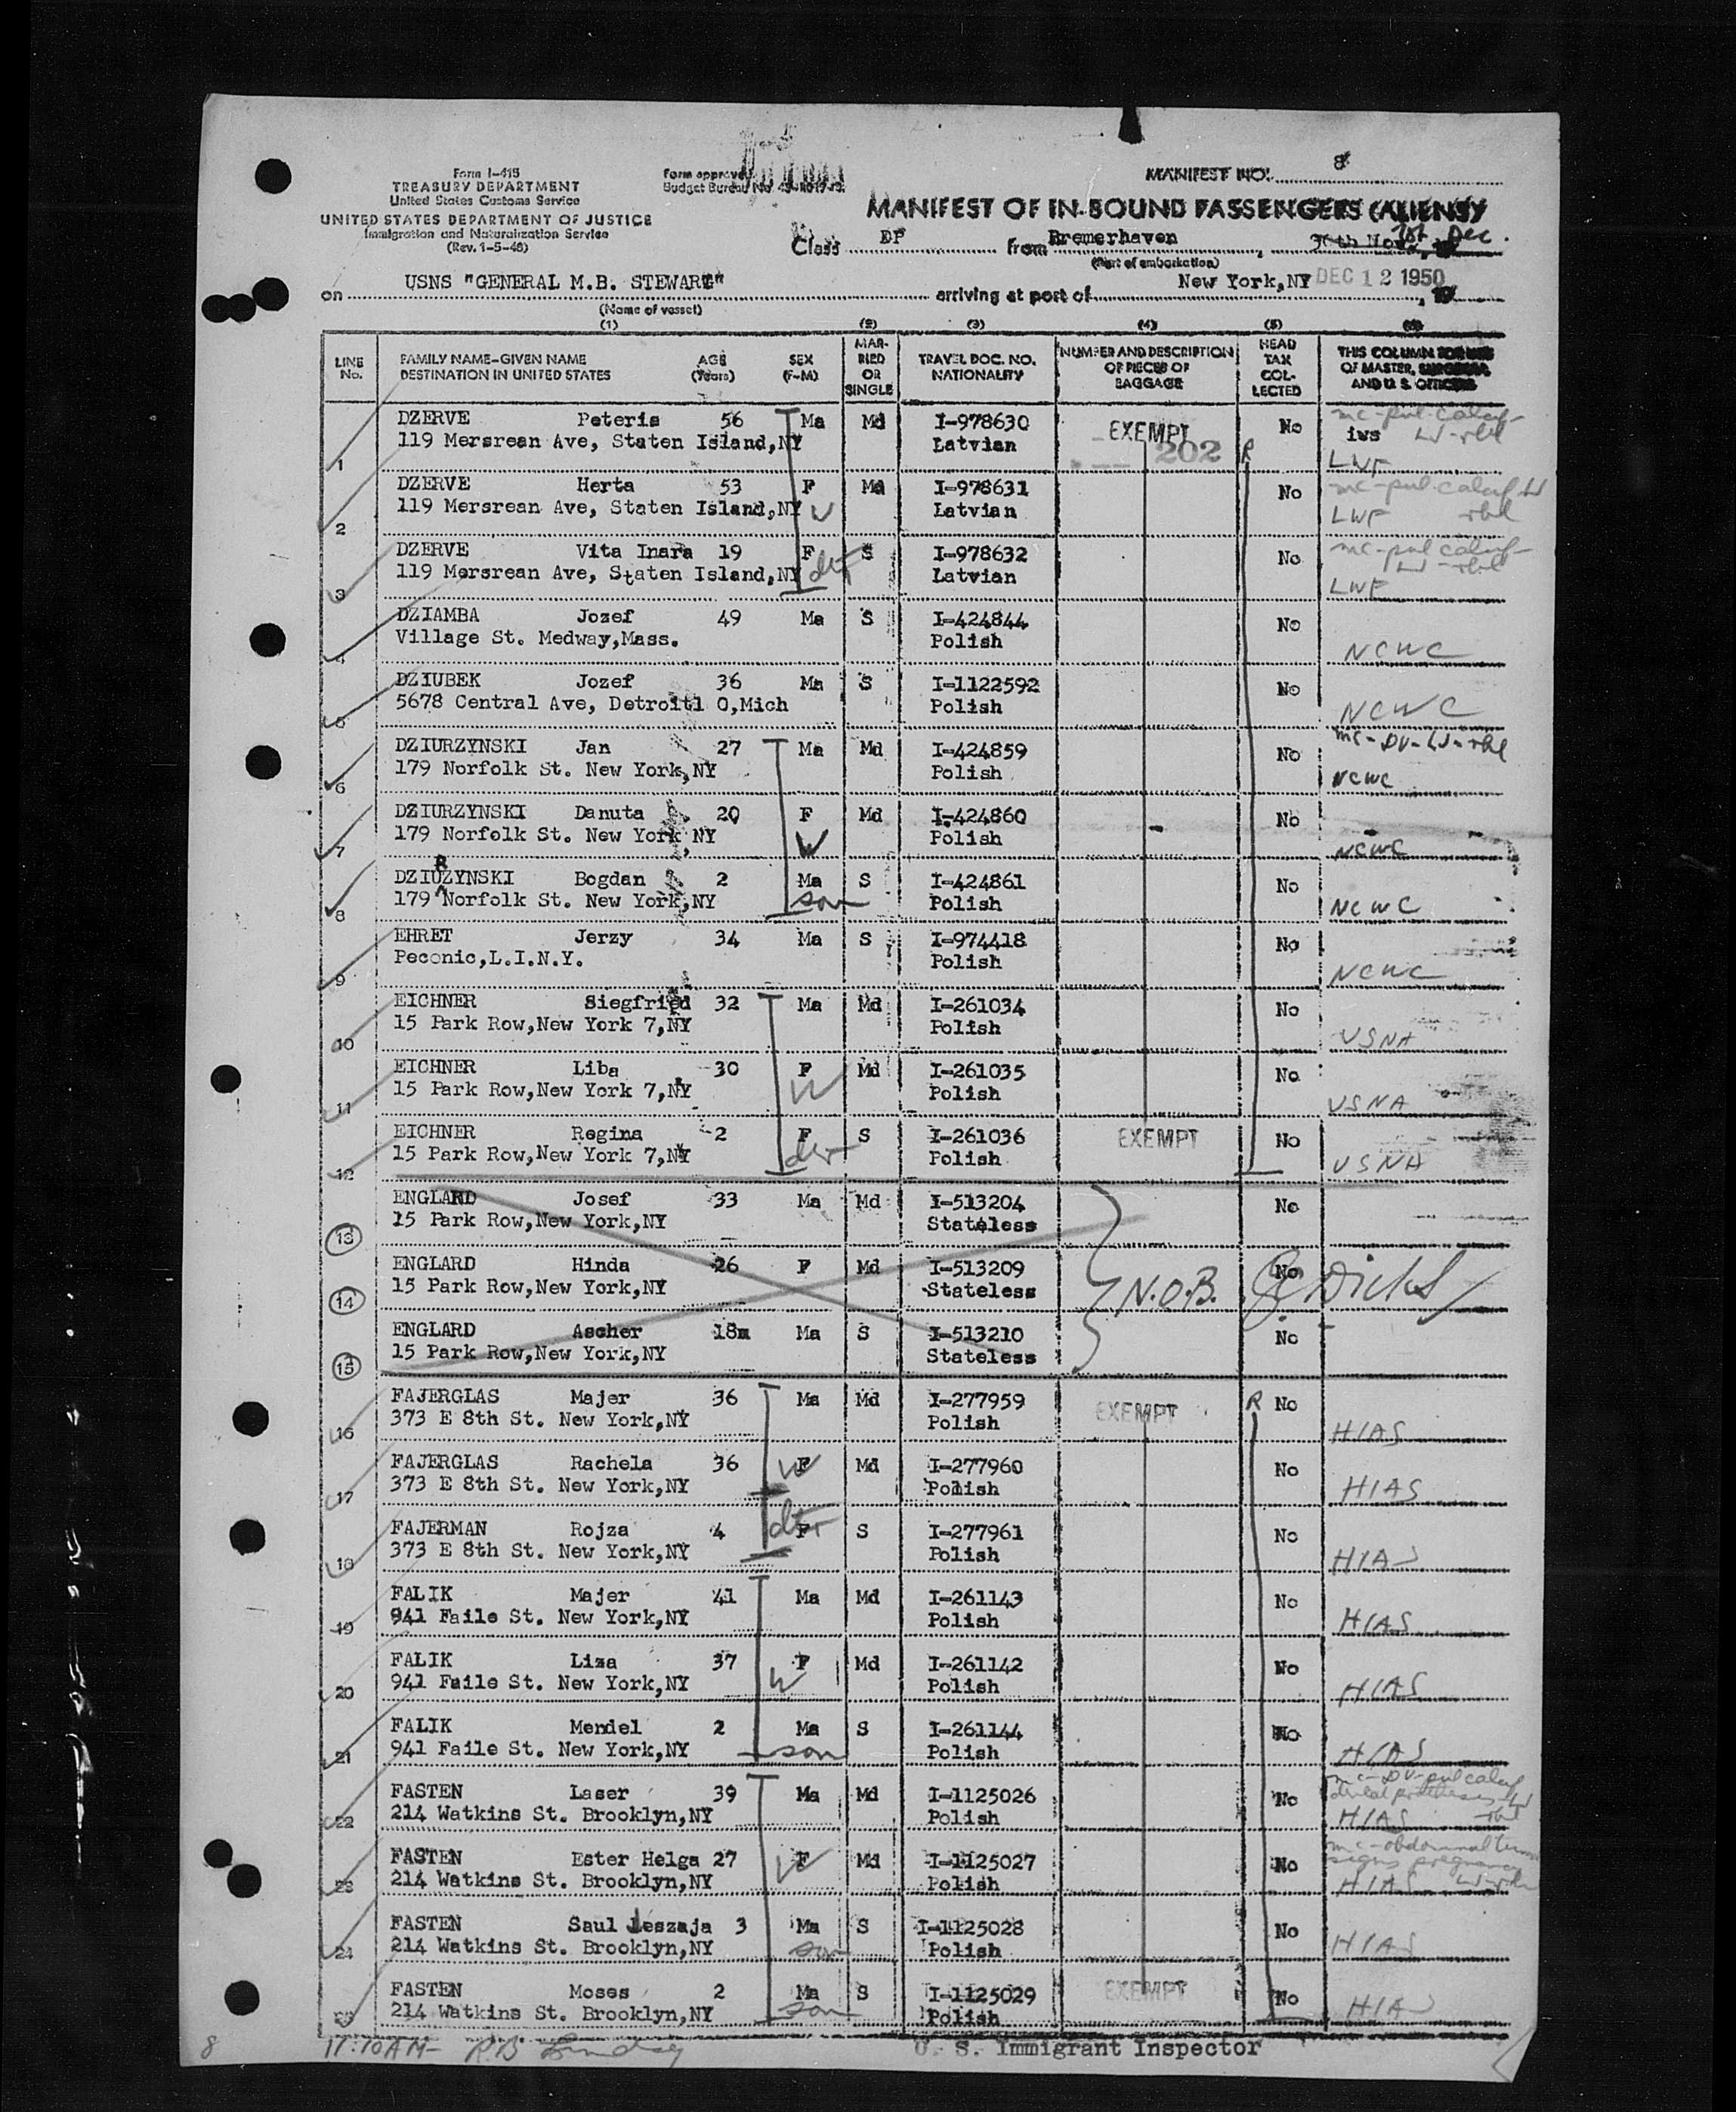 Form I-415
TREASURY DEPARTMENT
United States Customs Service
UNITED STATES DEPARTMENT OF JUSTICE
Immigration and Naturalization Service
(Rev. 1-5-48)
Form approved
Budget Bureau No.
MANIFEST NO. 8
MANIFEST OF IN-BOUND PASSENGERS (ALIENS)
Class DP from Bremerhaven, 30th Nov. 1st Dec. 19
(Port of embarkation)
on USNS "GENERAL M.B. STEWART" arriving at port of New York,NY DEC 12 1950, 19
(Name of vessel)
(1) (2) (3) (4) (5) (6)
LINE No. FAMILY NAME-GIVEN NAME DESTINATION IN UNITED STATES AGE (Years) SEX (F-M) MARRIED OR SINGLE TRAVEL DOC. NO. NATIONALITY NUMBER AND DESCRIPTION OF PIECES OF BAGGAGE HEAD TAX COLLECTED THIS COLUMN FOR USE OF MASTER, SURGEON, AND U. S. OFFICERS
1 DZERVE Peteris 56 Ma Md I-978630 EXEMPT No
119 Mersrean Ave, Staten Island,NY Latvian 202 R iws LWF
2 DZERVE Herta 53 F Md I-978631 No
119 Mersrean Ave, Staten Island,NY W Latvian LWF
3 DZERVE Vita Inara 19 F S I-978632 No
119 Mersrean Ave, Staten Island,NY dtr Latvian LWF
4 DZIAMBA Jozef 49 Ma S I-424844 No
Village St. Medway,Mass. Polish NCWC
5 DZIUBEK Jozef 36 Ma S I-1122592 No
5678 Central Ave, Detroitl 0,Mich Polish NCWC
6 DZIURZYNSKI Jan 27 Ma Md I-424859 No mc-DV-
179 Norfolk St. New York,NY Polish NCWC
7 DZIURZYNSKI Danuta 20 F Md I-424860 No
179 Norfolk St. New York,NY W Polish NCWC
R
8 DZIUZYNSKI Bogdan 2 Ma S I-424861 No
179 Norfolk St. New York,NY son Polish NCWC
9 EHRET Jerzy 34 Ma S I-974418 No
Peconic,L.I.N.Y. Polish NCWC
10 EICHNER Siegfried 32 Ma Md I-261034 No
15 Park Row,New York 7,NY Polish USNA
11 EICHNER Liba 30 F Md I-261035 No
15 Park Row,New York 7,NY W Polish USNA
12 EICHNER Regina 2 F S I-261036 EXEMPT No
15 Park Row,New York 7,NY dtr Polish USNA
13 ENGLARD Josef 33 Ma Md I-513204 No
15 Park Row,New York,NY Stateless
14 ENGLARD Hinda 26 F Md I-513209 No
15 Park Row,New York,NY Stateless N.O.B.
15 ENGLARD Ascher 18m Ma S I-513210 No
15 Park Row,New York,NY Stateless
16 FAJERGLAS Majer 36 Ma Md I-277959 EXEMPT R No
373 E 8th St. New York,NY Polish HIAS
17 FAJERGLAS Rachela 36 F Md I-277960 No
373 E 8th St. New York,NY W Polish HIAS
18 FAJERMAN Rojza 4 F S I-277961 No
373 E 8th St. New York,NY dtr Polish HIAS
19 FALIK Majer 41 Ma Md I-261143 No
941 Faile St. New York,NY Polish HIAS
20 FALIK Liza 37 F Md I-261142 No
941 Faile St. New York,NY W Polish HIAS
21 FALIK Mendel 2 Ma S I-261144 No
941 Faile St. New York,NY son Polish HIAS
22 FASTEN Laser 39 Ma Md I-1125026 No
214 Watkins St. Brooklyn,NY Polish HIAS
23 FASTEN Ester Helga 27 F Md I-1125027 No
214 Watkins St. Brooklyn,NY W Polish HIAS
24 FASTEN Saul Leszaja 3 Ma S I-1125028 No
214 Watkins St. Brooklyn,NY son Polish HIAS
25 FASTEN Moses 2 Ma S I-1125029 EXEMPT No
214 Watkins St. Brooklyn,NY son Polish HIAS
8 U. S. Immigrant Inspector